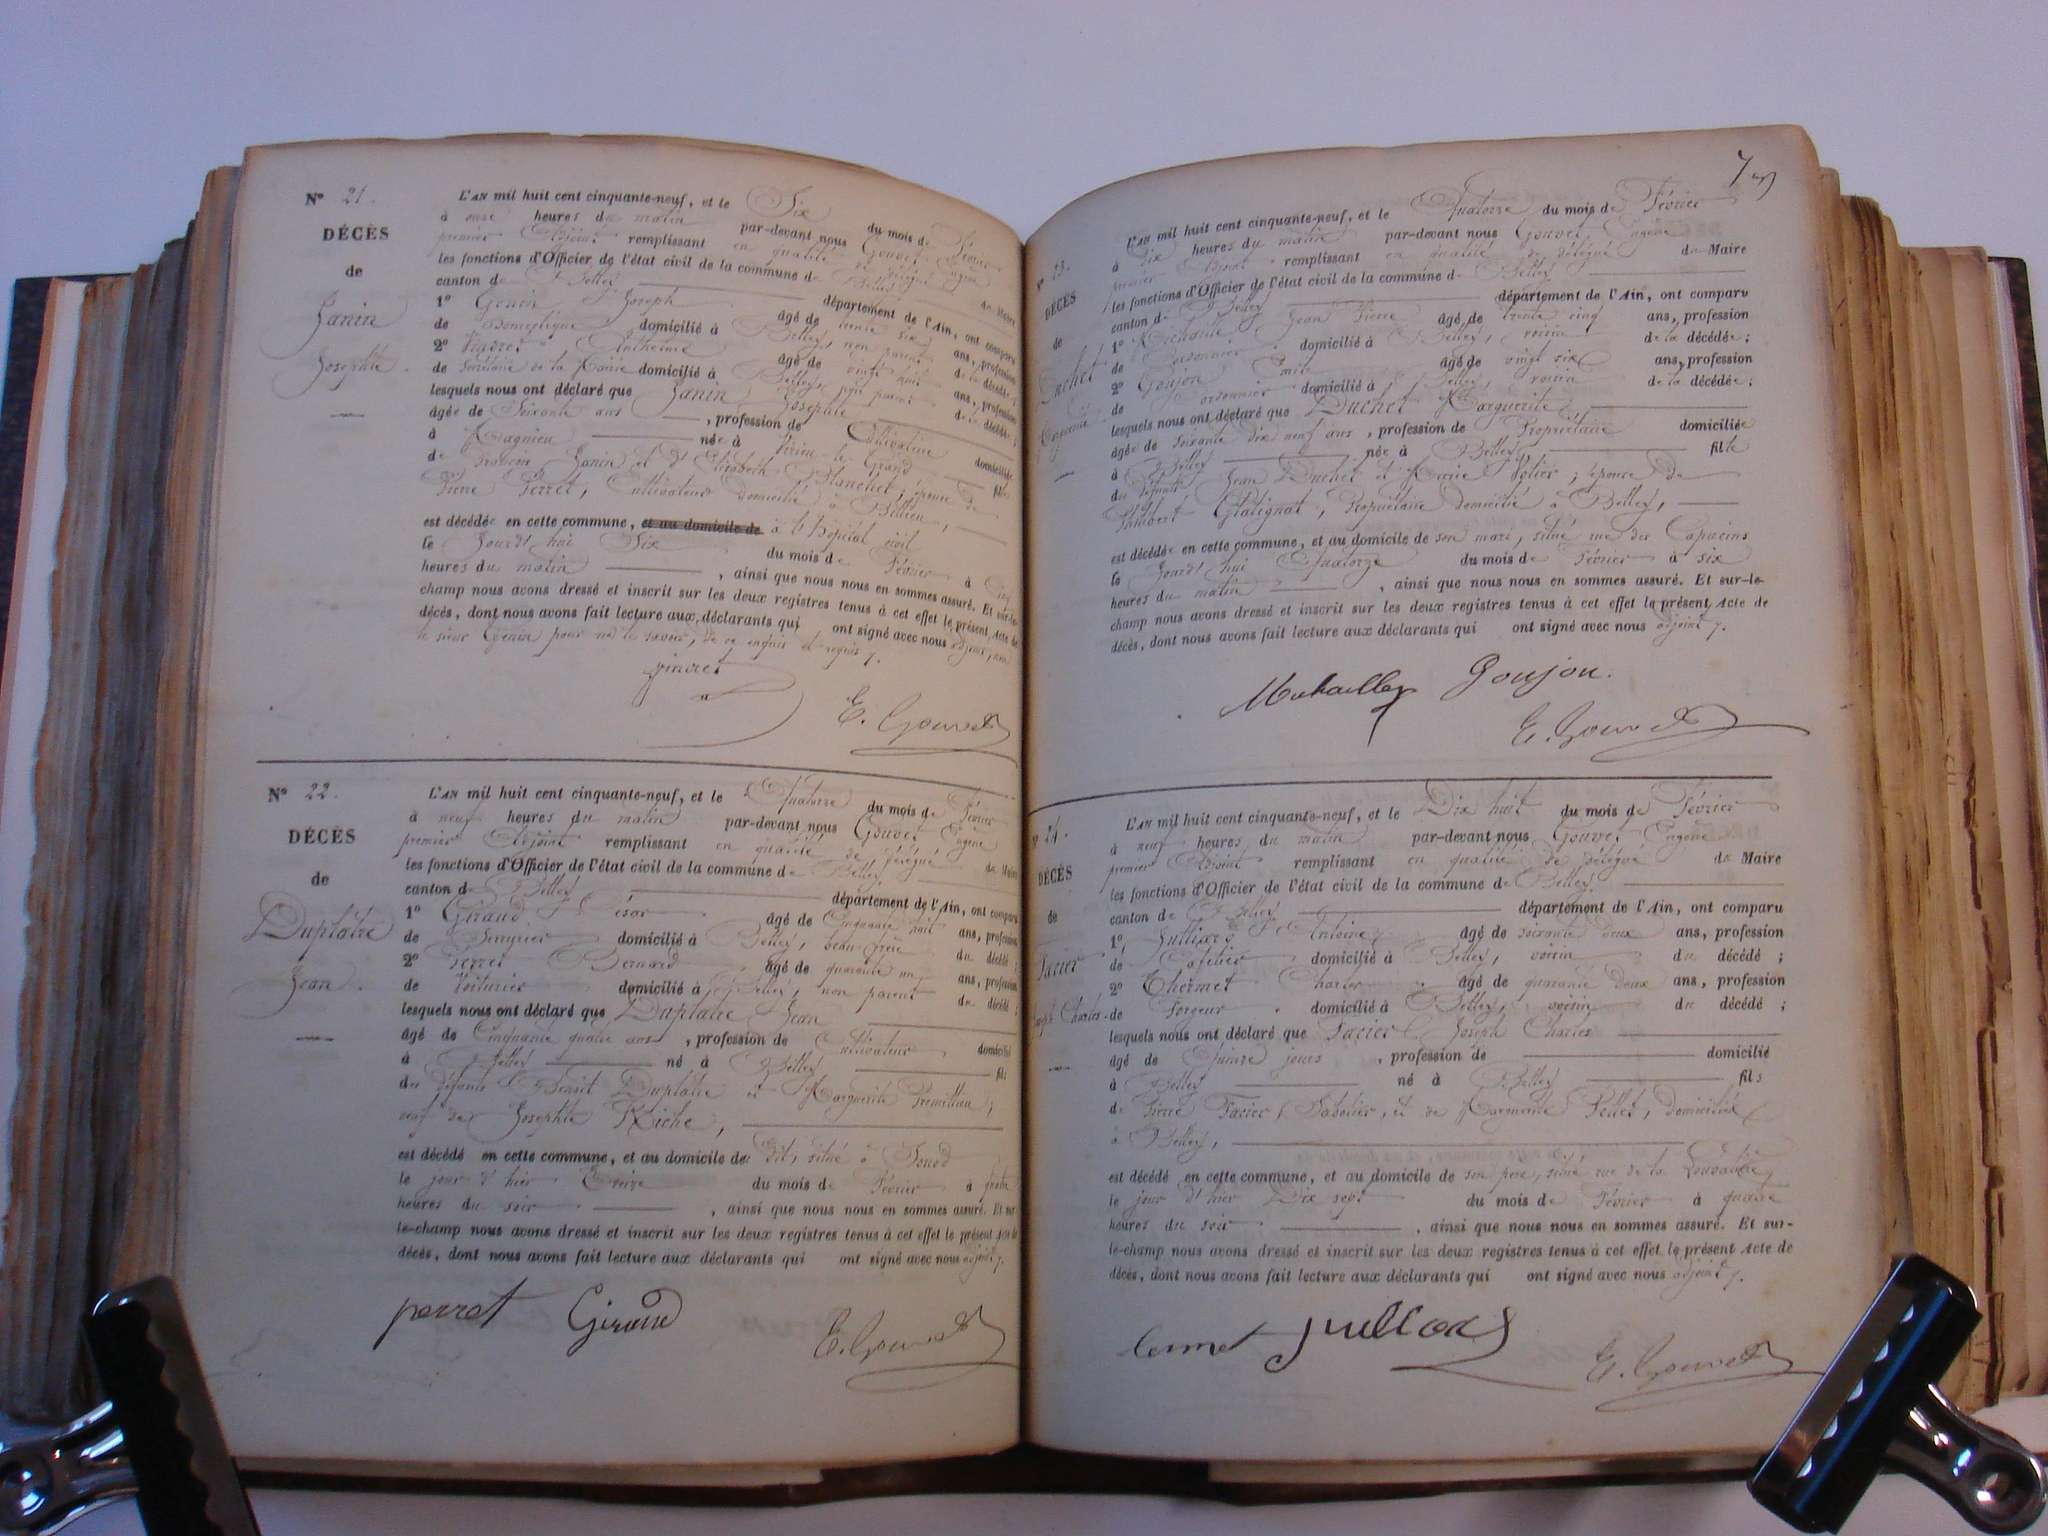 N° 21.
DÉCÈS
de
Janin
Josephte.
L'AN mil huit cent cinquante-neuf, et le Six du mois de Février
à onze heures du matin par-devant nous Gouvet Eugène
premier Adjoint remplissant en qualité de délégué du Maire
les fonctions d'Officier de l'état civil de la commune de Belley
canton de Belley département de l'Ain, ont comparu
1° Genin Joseph âgé de trente six ans, profession
de Domestique domicilié à Belley, non parent de la décédée ;
2° Anthelme âgé de vingt huit ans, profession
de de la Mairie domicilié à Belley, non parent de la décédée ;
lesquels nous ont déclaré que Janin Josephte
âgée de Soixante ans, profession de Cultivatrice domiciliée
à Magnieu née à Virieu-le-Grand fille
de François Janin et d'Elisabeth Blanchet ; épouse de
Pierre Perret, Cultivateur domicilié à
est décédée en cette commune, et au domicile de à l'Hôpital civil
le Jourd'hui Six du mois de Février à
heures du matin, ainsi que nous nous en sommes assuré. Et sur-le-
champ nous avons dressé et inscrit sur les deux registres tenus à cet effet le présent Acte de
décès, dont nous avons fait lecture aux déclarants qui ont signé avec nous adjoint, non
le sieur Genin pour ne le savoir, de ce enquis et requis
E. Gouvet
N° 22.
DÉCÈS
de
Duplatre
Jean.
L'AN mil huit cent cinquante-neuf, et le Quatorze du mois de Février
à neuf heures du matin par-devant nous Gouvet Eugène
premier Adjoint remplissant en qualité de délégué du Maire
les fonctions d'Officier de l'état civil de la commune de Belley
canton de Belley département de l'Ain, ont comparu
1° Giraud César âgé de Cinquante huit ans, profession
de domicilié à Belley, beau-frère du décédé ;
2° Perret Bernard âgé de quarante un ans, profession
de Voiturier domicilié à Belley, non parent du décédé ;
lesquels nous ont déclaré que Duplatre Jean
âgé de Cinquante quatre ans, profession de Cultivateur domicilié
à Belley né à Belley fils
du défunt Benoit Duplatre et Marguerite Prémillieu ;
veuf de Josephte Riche,
est décédé en cette commune, et au domicile de dit, situé à
le jour d'hier Treize du mois de Février à
heures du soir, ainsi que nous nous en sommes assuré. Et sur-
le-champ nous avons dressé et inscrit sur les deux registres tenus à cet effet le présent Acte de
décès, dont nous avons fait lecture aux déclarants qui ont signé avec nous adjoint
perret Giraud
E. Gouvet
7
N° 23.
DÉCÈS
de
Duchet
Marguerite
L'AN mil huit cent cinquante-neuf, et le Quatorze du mois de Février
à Dix heures du matin par-devant nous Gouvet, Eugène
premier Adjoint remplissant en qualité de délégué du Maire
les fonctions d'Officier de l'état civil de la commune de Belley
canton de Belley département de l'Ain, ont comparu
1° Jean Pierre âgé de trente cinq ans, profession
de domicilié à Belley, voisin de la décédée ;
2° Goujon âgé de vingt six ans, profession
de Cordonnier domicilié à Belley, voisin de la décédée ;
lesquels nous ont déclaré que Duchet Marguerite
âgée de soixante dix neuf ans, profession de Propriétaire domiciliée
à Belley née à Belley, fille
du défunt Jean Duchet et Marie ; épouse de
Platignat, Propriétaire domicilié à Belley,
est décédée en cette commune, et au domicile de son mari, situé rue des Capucins
le Jourd'hui Quatorze du mois de Février à six
heures du matin, ainsi que nous nous en sommes assuré. Et sur-le-
champ nous avons dressé et inscrit sur les deux registres tenus à cet effet le présent Acte de
décès, dont nous avons fait lecture aux déclarants qui ont signé avec nous adjoint
Goujon.
E. Gouvet
N° 24.
DÉCÈS
de
Tacier
Joseph Charles.
L'AN mil huit cent cinquante-neuf, et le Dix huit du mois de Février
à neuf heures du matin par-devant nous Gouvet Eugène
premier Adjoint remplissant en qualité de délégué du Maire
les fonctions d'Officier de l'état civil de la commune de Belley
canton de Belley département de l'Ain, ont comparu
1° Juillard Antoine âgé de soixante deux ans, profession
de domicilié à Belley, voisin du décédé ;
2° Thermet Charles âgé de quarante deux ans, profession
de Forgeur domicilié à Belley, voisin du décédé ;
lesquels nous ont déclaré que Tacier Joseph Charles
âgé de Quinze jours, profession de domicilié
à Belley né à Belley fils
de Pierre Tacier, Sabotier, et de Pellet, domiciliés
à Belley,
est décédé en cette commune, et au domicile de son père, situé rue de la
le jour d'hier Dix sept du mois de Février à quatre
heures du soir, ainsi que nous nous en sommes assuré. Et sur-
le-champ nous avons dressé et inscrit sur les deux registres tenus à cet effet le présent Acte de
décès, dont nous avons fait lecture aux déclarants qui ont signé avec nous adjoint
juillard
E. Gouvet